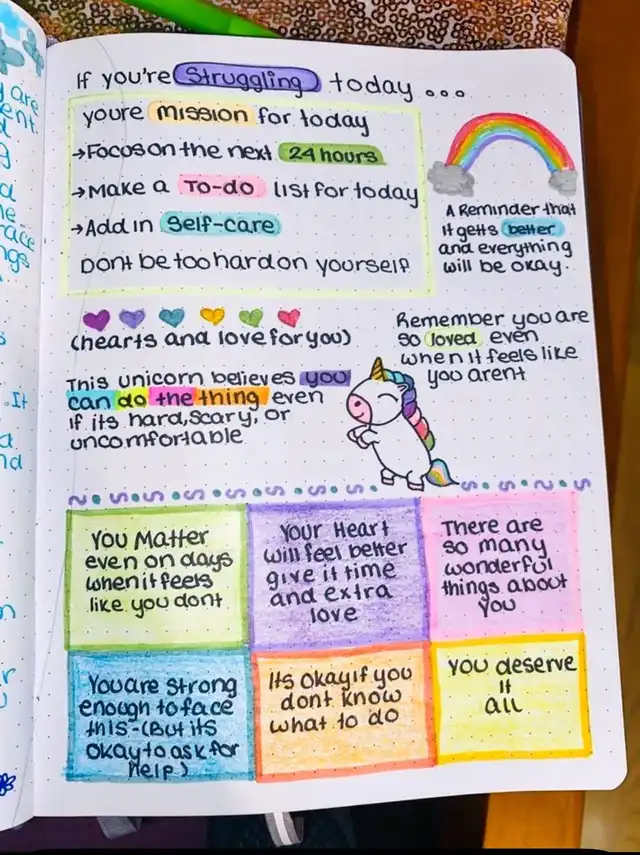 If you're Struggling today ...
you're mission for today
→Focus on the next 24 hours
→Make a To-do list for today
→Add in Self-care
Dont be too hard on yourself
A Reminder that
it getts better
and everything
will be okay.
(hearts and love for you)
Remember you are
so loved even
when it feels like
you arent
This unicorn believes you
can do the thing even
if its hard, scary, or
uncomfortable
You Matter
even on days
when it feels
like you dont
Your Heart
will feel better
give it time
and extra
love
There are
so many
wonderful
things about
you
You are strong
enough to face
this-(But its
okay to ask for
Help)
Its okay if you
dont know
what to do
You deserve
it
all